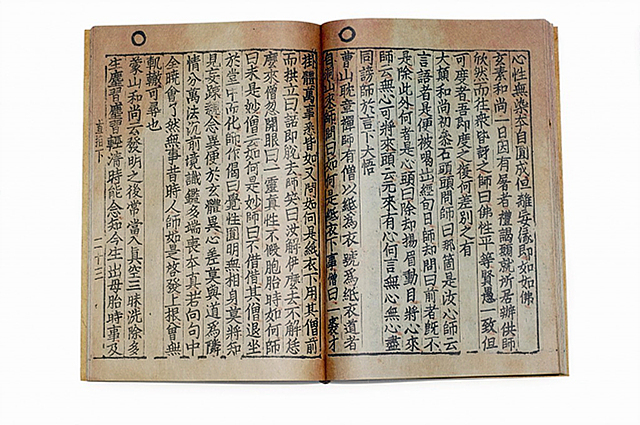 心性無染本自圓成但離妄緣即如如佛
玄素和尚一日因有屠者禮謁願就所居辦供師
欣然而往衆皆訝之師曰佛性平等賢愚一致但
可度者吾即度之復何差別之有
大顚和尚初叅石頭頭問師曰那箇是汝心師云
言語者是便被喝出經旬日師却問曰前者旣不
是除此外何者是心頭曰除却揚眉動目將心來
師云無心可將來頭云元來有心何言無心無心盡
同謗師於言下大悟
曹山耽章禪師有僧以紙爲衣號爲紙衣道者
自洞山來師問曰如何是紙衣下事僧曰一裘才
掛體萬事悉皆如又問如何是紙衣下用其僧前
而拱立曰諾即脫去師笑曰汝解伊麽去不解恁
麽來僧忽開眼曰一靈眞性不假胞胎時如何師
曰未是妙僧云如何是妙師曰不借借其僧退坐
於堂中而化師作偈曰覺性圓明無相身莫將知
見妄踈親念異便於玄體昧心差莫與道爲隣
情分萬法沉前境識鑑多端喪本眞若向句中
全曉會了然無事昔時人師如是啓發上根曾無
軌轍可尋也
蒙山和尚云發明之後常當入眞空三昧洗除多
生塵習塵習輕淸時能念知今生出母胎時事及
直指下 二十三